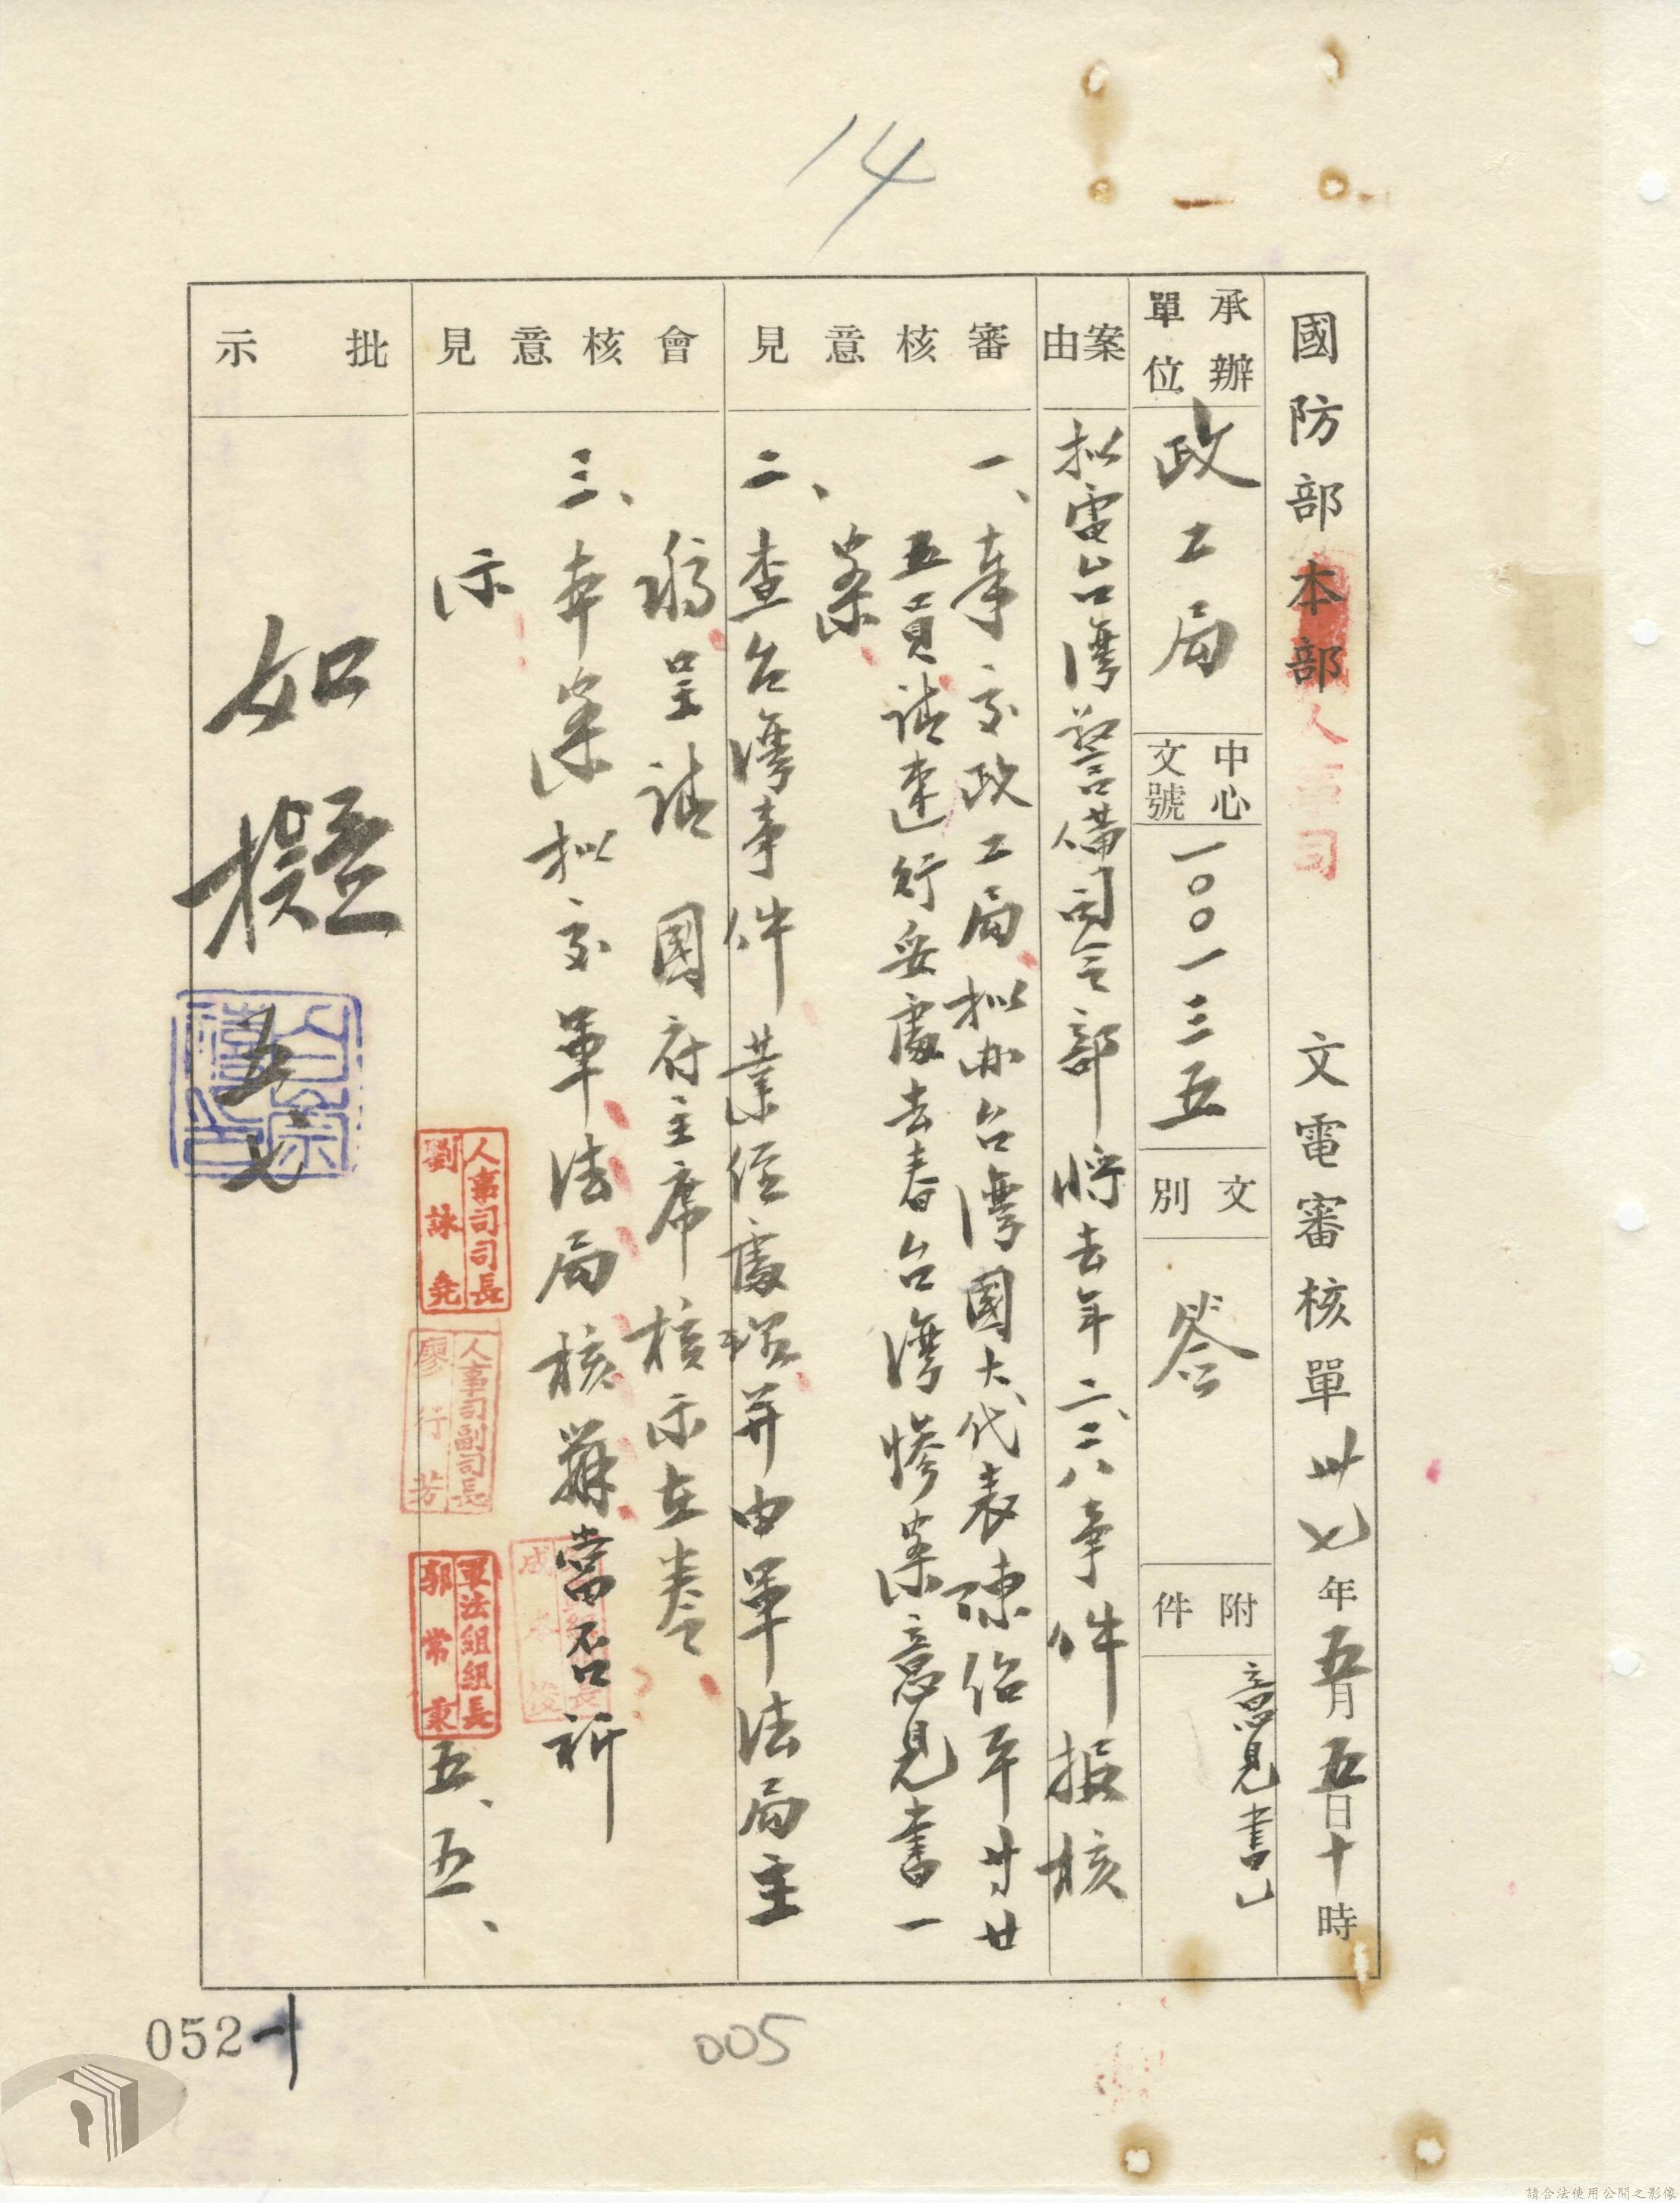 14
國防部本部人事司 文電審核單 卅七年五月五日十時
承辦單位 政工局 中心文號 一〇〇一三五 文別 簽 附件 意見書乙
案由 拟電台灣警備司令部將去年二、二八事件报核
審核意見
一、事交政工局拟办台灣國大代表陳
五員請速行妥處去春台灣慘案意見書一
案
二、查台灣事件業經處理并由軍法局主
稿呈請 國府主席核示在卷
會核意見
三、本案拟交軍法局核辦當否祈
示
人事司司長 劉詠堯
人事司副司長 廖行芳
軍法組組長 郭常秉
五、五、
批示
如擬 五、七
白崇禧印
052-1
005
請合法使用公開之影像